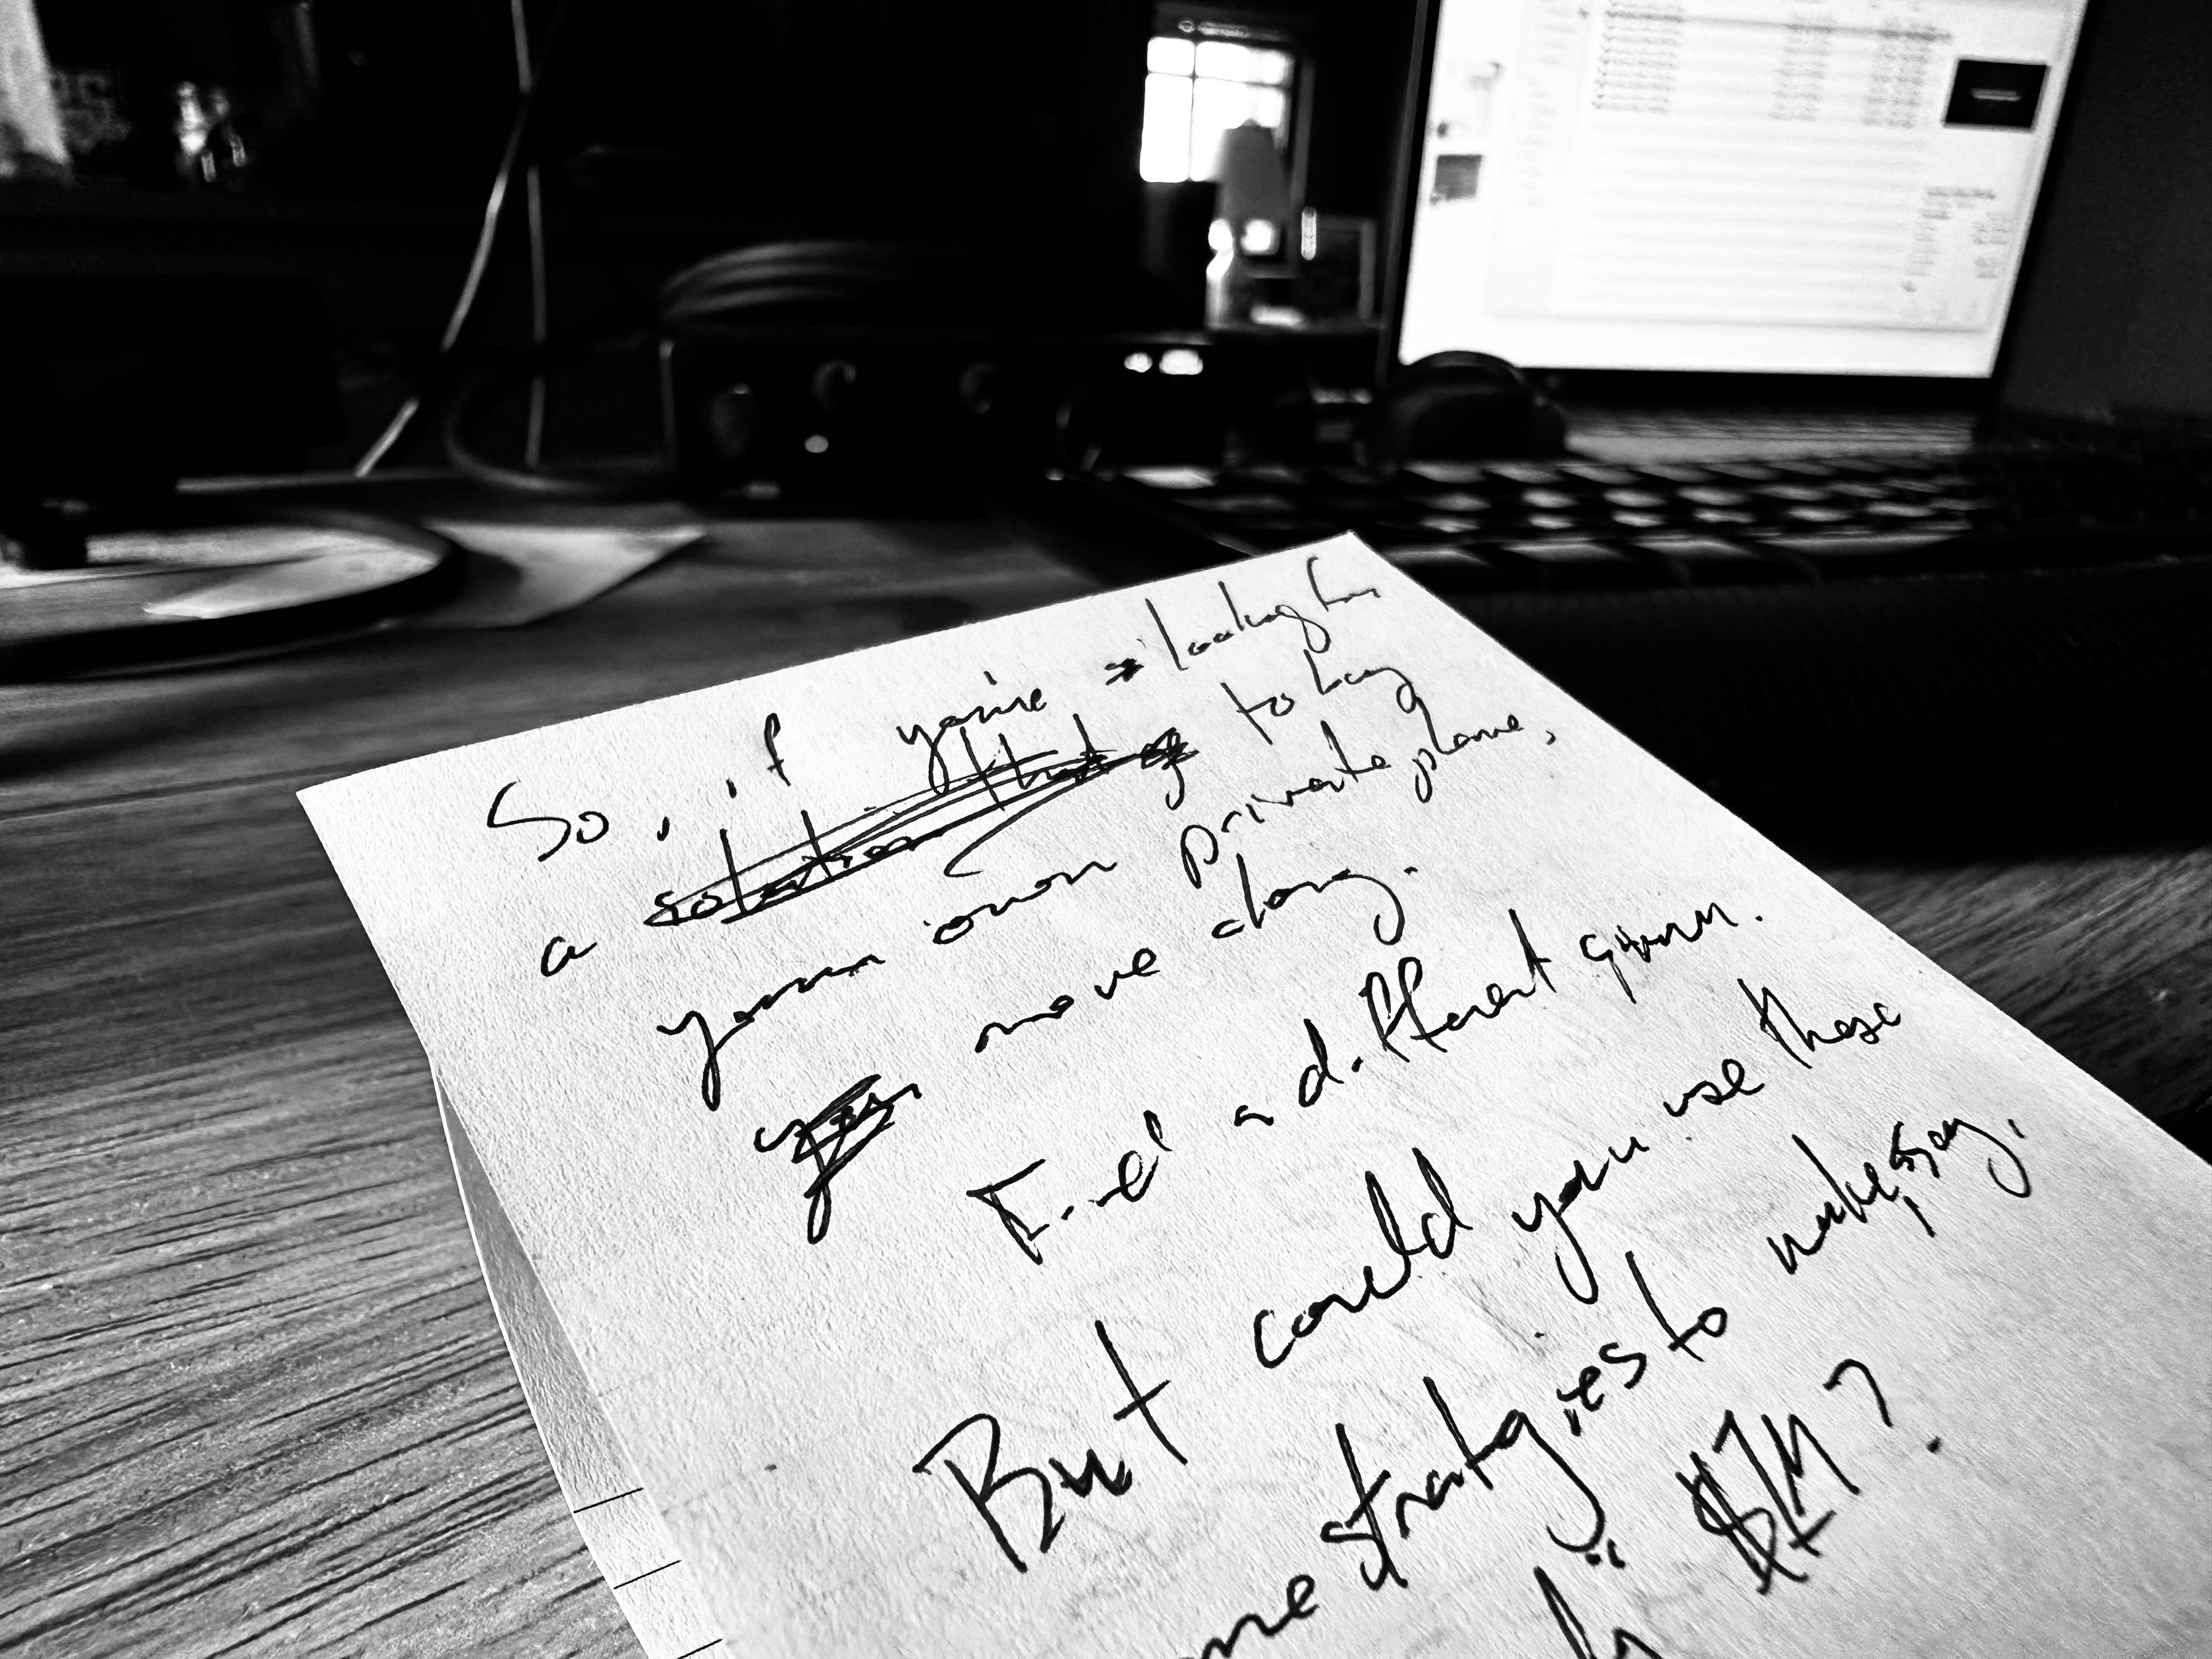 So, if you're looking for
a solution that to buy
your own private plane,
you move along.
Find a different guru.
But could you use these
me strategies to make, say,
$1M?